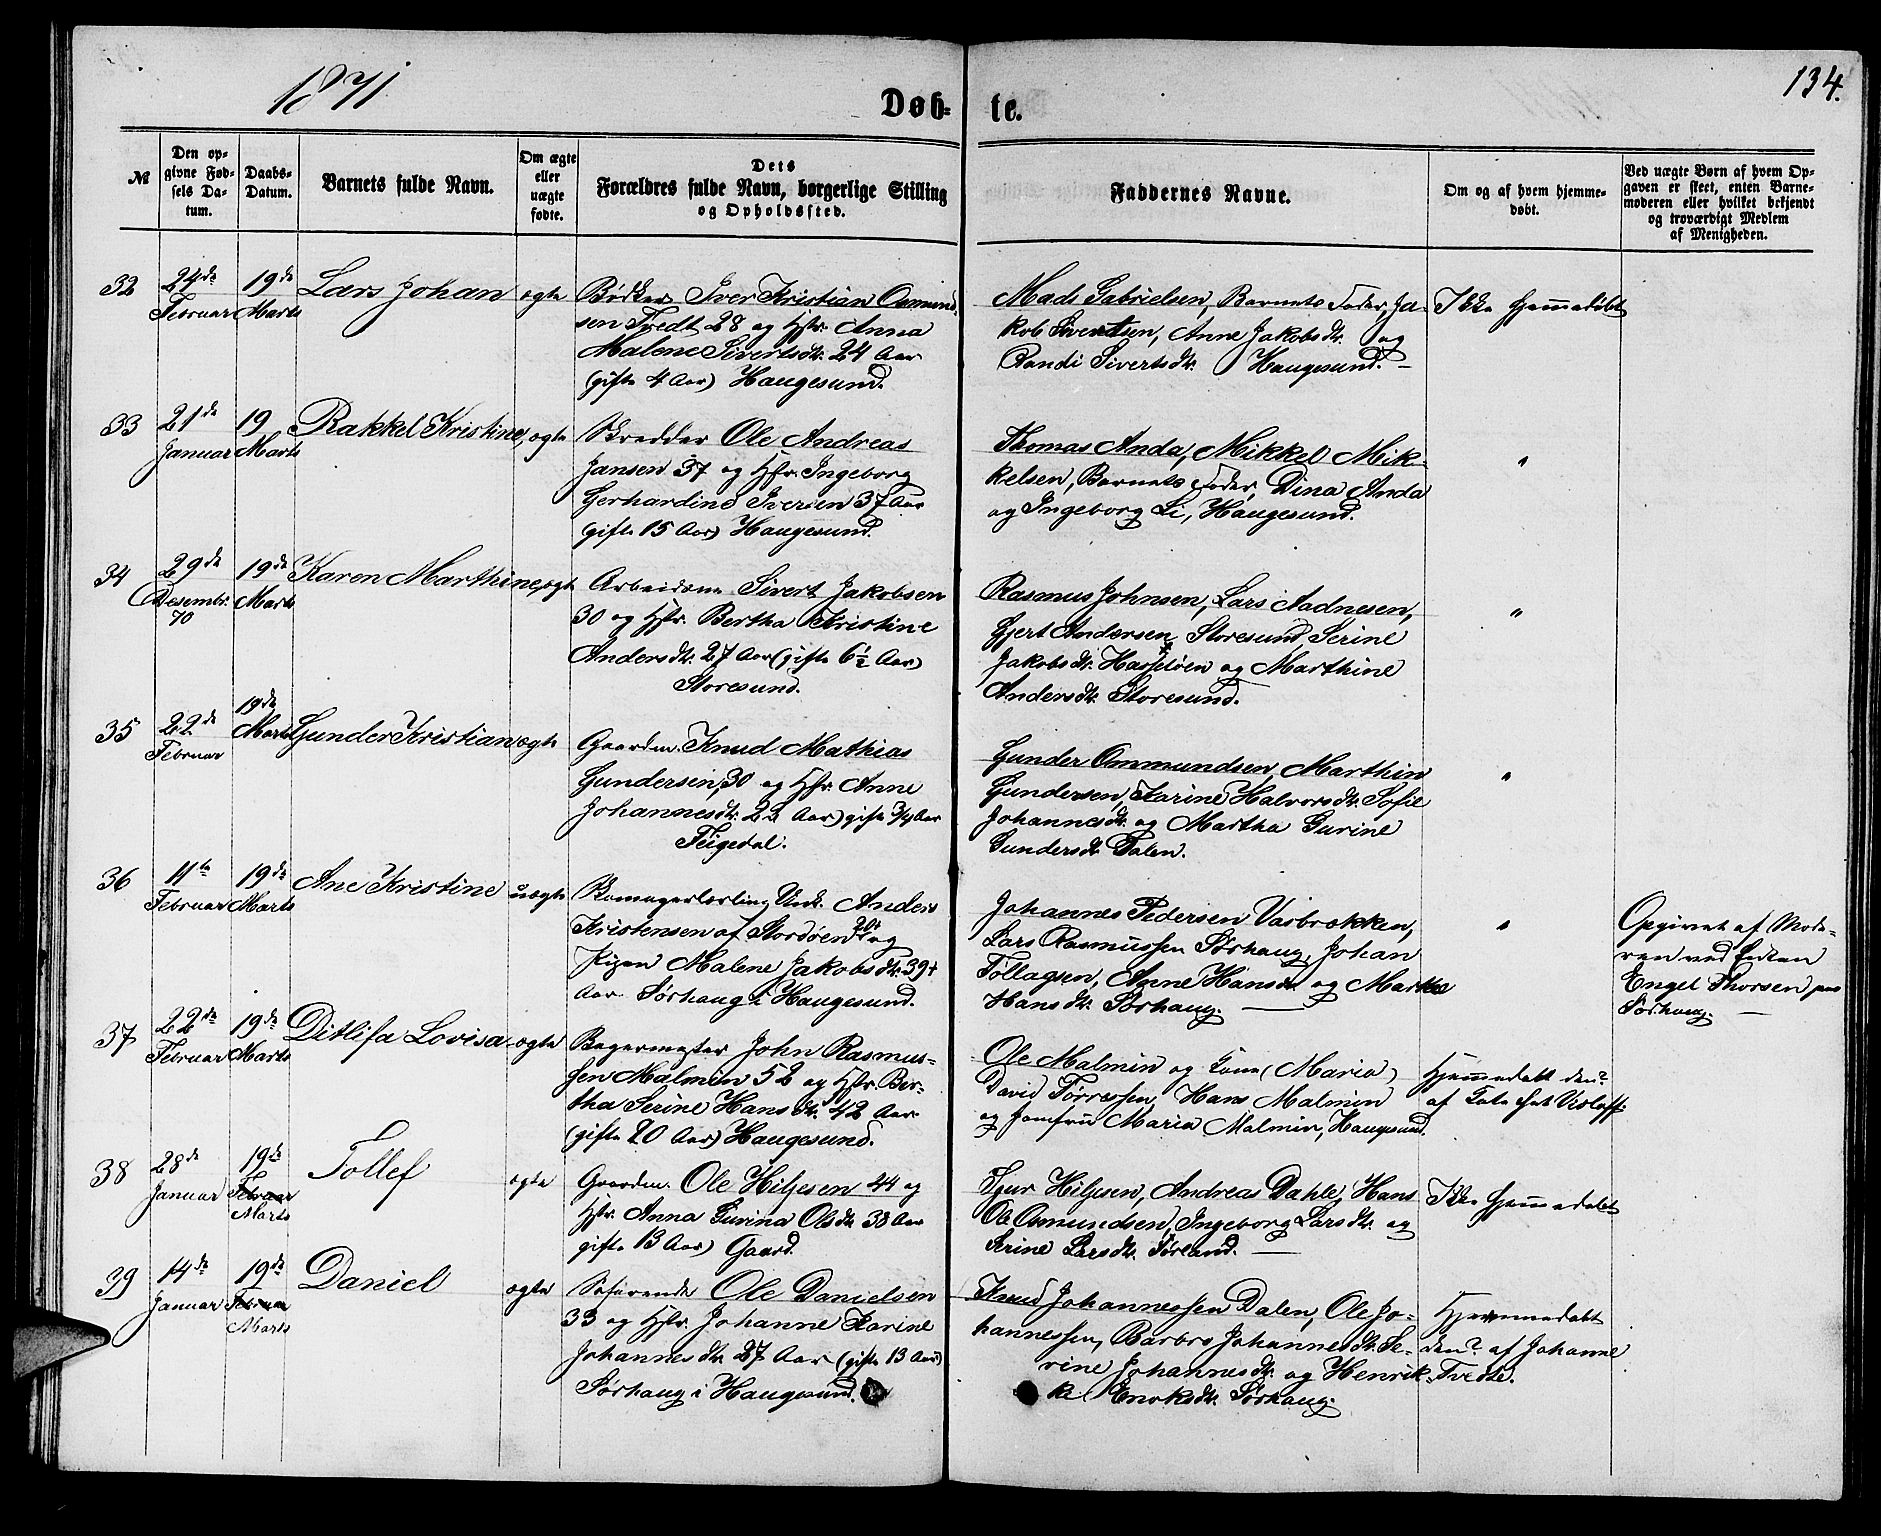 1871
Døb-
te.
134.
№
Den op-
givne Fød-
sels Da-
tum.
Daabs-
Datum.
Barnets fulde Navn.
Om ægte
eller
uægte
fødte.
Dets
Forældres fulde Navn, borgerlige Stilling
og Opholdssted.
Faddernes Navne.
Om og af hvem hjemme-
døbt.
Ved uægte Børn af hvem Op-
gaven er skeet, enten Barne-
moderen eller hvilket bekjendt
og troværdigt Medlem
af Menigheden.
32
24de
Februar
19de
Marts
Lars Johan
ægte
Bødker Iver Kristian Osmund-
sen Tvedt 28 og Hstr. Anna
Malene Sivertsdtr. 24 Aar
(gifte 4 Aar) Haugesund.
Mads Gabrielsen, Barnets Fader, Ja-
kob Sivertsen, Anne Jakobsdtr. og
Randi Sivertsdtr. Haugesund.
Ikke hjemmedøbt
33
21de
Januar
19
Marts
Rakkel Kristine,
ægte
Skredder Ole Andreas
Jansen 37 og Hstr. Ingeborg
Gerhardine Iversen 37 Aar
(gifte 15 Aar) Haugesund.
Thomas Anda, Mikkel Mik-
kelsen, Barnets Fader, Dina Anda
og Ingeborg Li, Haugesund.
"
34
29de
Desembr.
70
19de
Marts
Karen Marthine,
ægte
Arbeidsm. Sivert Jakobsen
30 og Hstr. Bertha Kristine
Andersdtr. 27 Aar (gifte 6½ Aar)
Storesund.
Rasmus Johnsen, Lars Aadnesen,
Gjert Andersen Storesund, Serine
Jakobsdtr. Hasseløen og Marthine
Andersdtr. Storesund.
"
35
22de
Februar
19de
Marts
Gunder Kristian
ægte
Gaardm. Knud Mathias
Gundersen, 30 og Hstr. Anne
Johannesdtr. 22 Aar) gifte ¾ Aar
Feigedal.
Gunder Ommundsen, Marthin
Gundersen, Karine Halvorsdtr. Sofie
Johannesdtr. og Martha Gurine
Gundersdtr. Dalen.
"
36
11te
Februar
19de
Marts
Ane Kristine
uægte
Skomagerlærling Unk. Anders
Kristensen af Stordøen 20+ og
Pigen Malene Jakobsdtr. 39+
Aar. Sørhaug i Haugesund.
Johannes Pedersen Vasbrekken,
Lars Rasmussen Sørhaug, Johan
Tollagsen, Anne Hansdtr. og Marthe
Hansdtr. Sørhaug.
"
Opgivet af Mode-
ren ved Enken
Engel Thorsen paa
Sørhaug.
37
22de
Februar
19de
Marts
Ditlifa Lovisa
ægte
Bagermester John Rasmus-
sen Malmin 52 og Hstr. Ber-
tha Serine Hansdtr. 42 Aar
(gifte 20 Aar) Haugesund.
Ole Malmin og Kone (Maria)
David Tørressen, Hans Malmin
og Jomfru Maria Malmin, Haugesund.
Hjemmedøbt den?
af
38
28de
Januar
19de
Februar
Marts
Tollef
ægte
Gaardm. Ole Hiljesen 44 og
Hstr. Anna Gurina Olsdtr. 38 Aar
gifte 13 Aar) Gaard.
Sjur Hiljesen, Andreas Dahle, Hans
Ole Osmundsen, Ingeborg Larsdtr. og
Serine Larsdtr. Sørland.
Ikke hjemmedøbt
39
14de
Januar
19de
Februar
Marts
Daniel
ægte
Søfarende Ole Danielsen
33 og Hstr. Johanne Karine
Johannesdtr. 27 Aar (gifte 13 Aar)
Sørhaug i Haugesund.
Knud Johannessen Dalen, Ole Jo-
hannessen, Barbro Johannesdtr. Se-
vine Johannesdtr. og Henrik-
ke Enoksdtr. Sørhaug.
Hjemmedøbt
den? af Johanne
Tvedte.